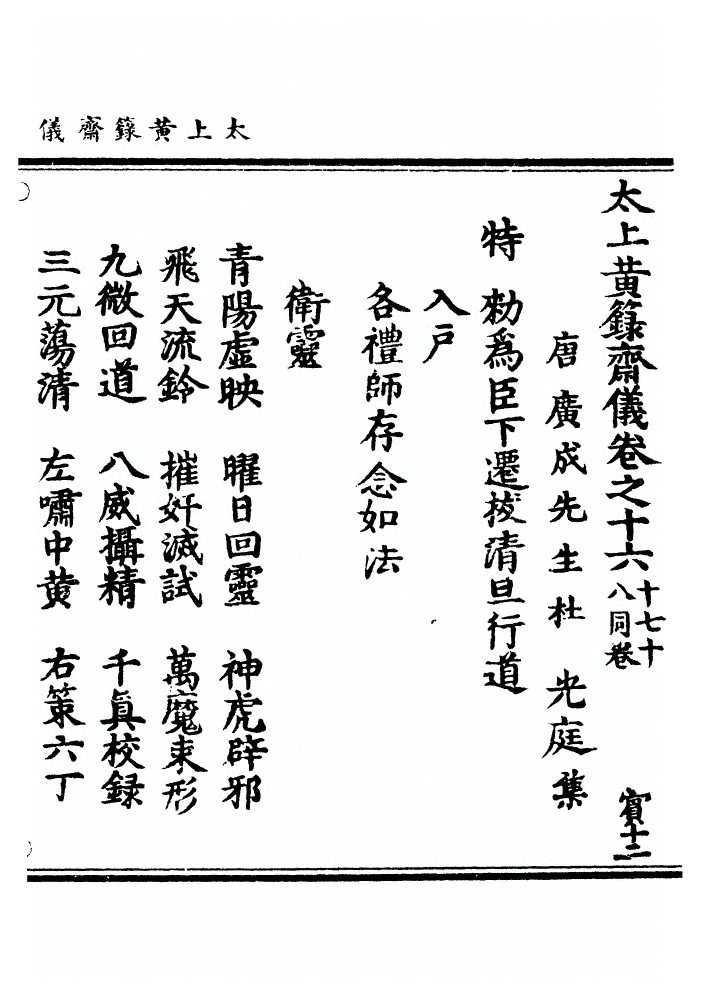 太上黃籙齋儀
太上黃籙齋儀卷之十六 十七十八同卷 賓十二
唐廣成先生杜光庭集
特勑爲臣下遷拔清旦行道
入戶
各禮師存念如法
衛靈
青陽虛映 曜日回靈 神虎辟邪
飛天流鈴 摧奸滅試 萬魔束形
九微回道 八威攝精 千眞校錄
三元蕩清 左嘯中黃 右策六丁